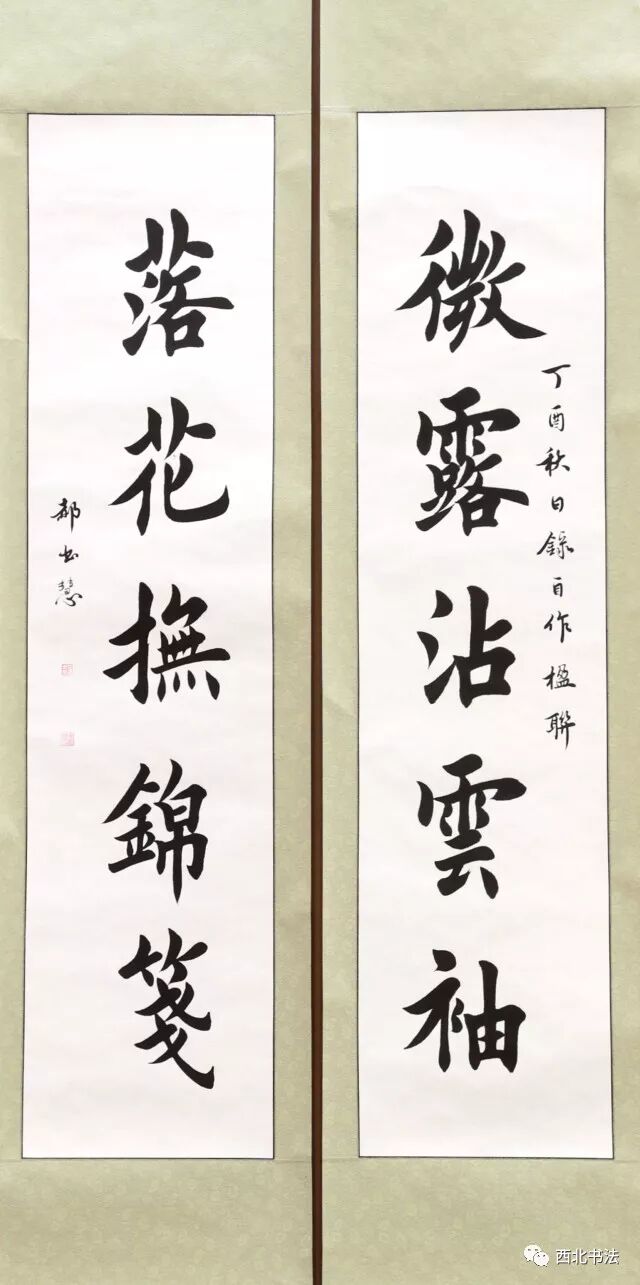 微露沾雲袖
丁酉秋日錄自作楹聯
落花撫錦箋
郝書慧
西北书法